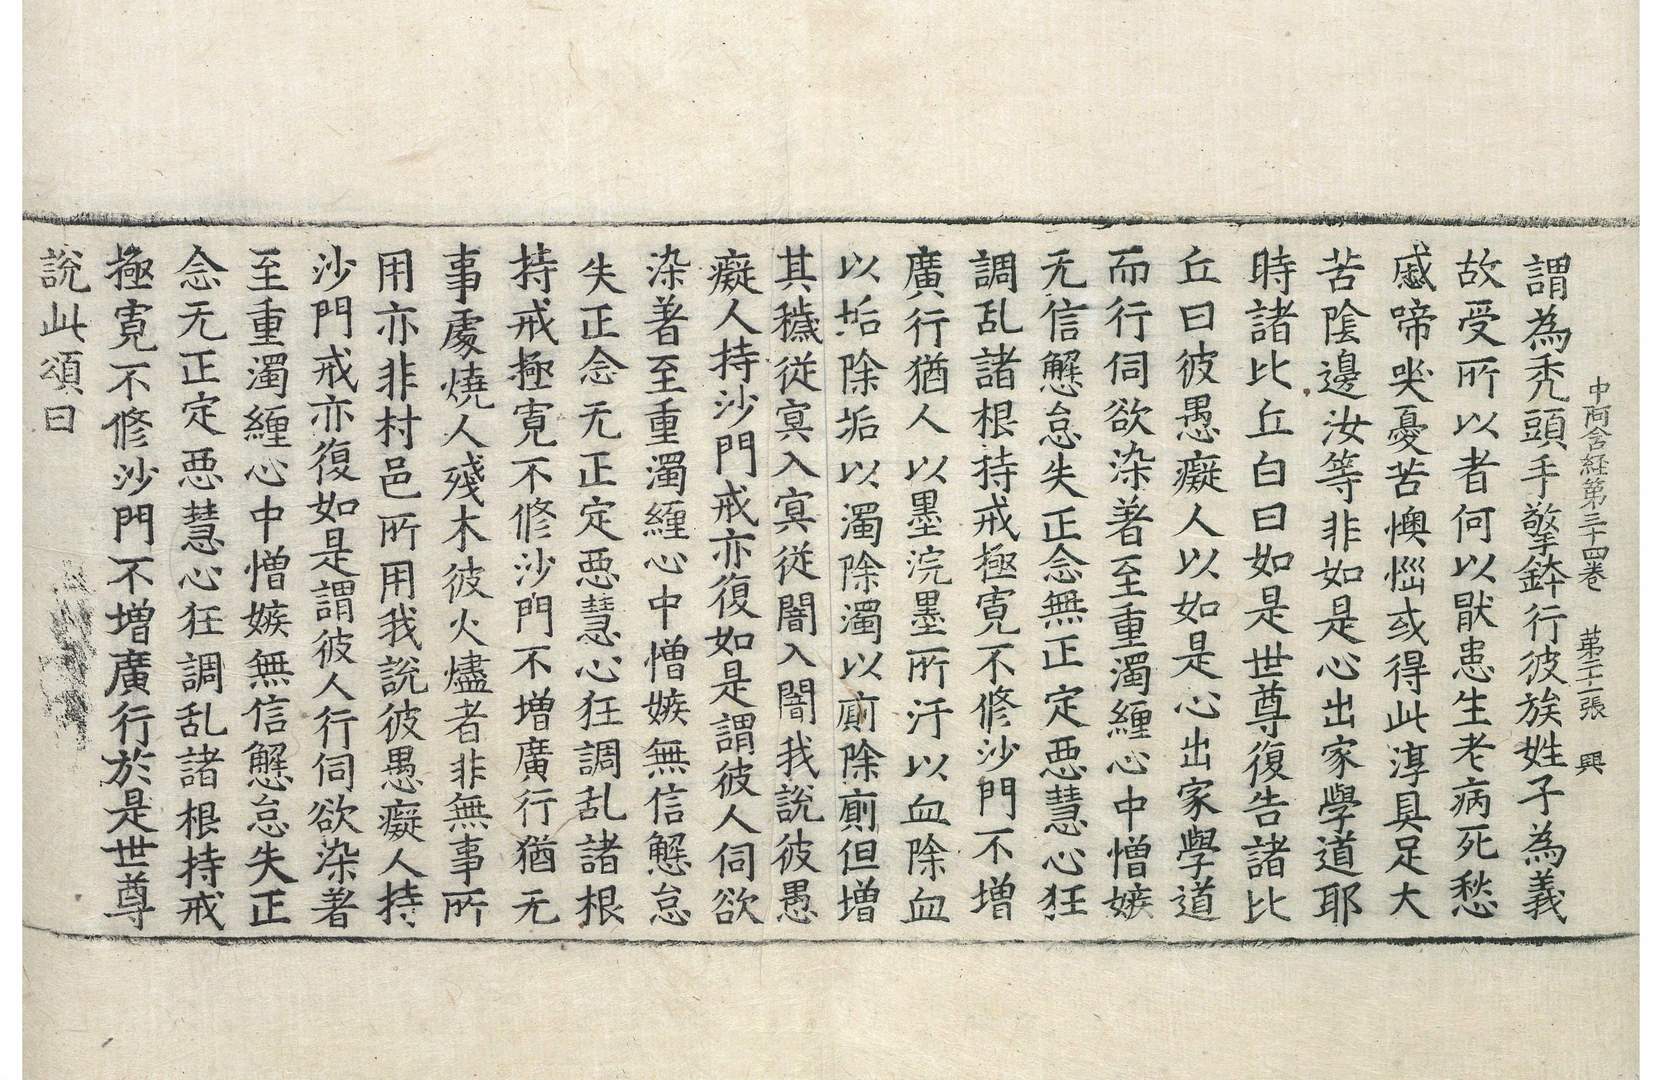 中阿含経第三十四巻　第二十二張　興
謂為禿頭手擎鉢行彼族姓子為義
故受所以者何以猒患生老病死愁
慼啼哭憂苦懊惱或得此淳具足大
苦陰邊汝等非如是心出家學道耶
時諸比丘白曰如是世尊復告諸比
丘曰彼愚癡人以如是心出家學道
而行伺欲染著至重濁纏心中憎嫉
无信懈怠失正念無正定惡慧心狂
調乱諸根持戒極寛不修沙門不增
廣行猶人以墨浣墨所汙以血除血
以垢除垢以濁除濁以廁除廁但增
其穢従冥入冥従闇入闇我說彼愚
癡人持沙門戒亦復如是謂彼人伺欲
染著至重濁纏心中憎嫉無信懈怠
失正念无正定惡慧心狂調乱諸根
持戒極寛不修沙門不增廣行猶无
事處燒人殘木彼火燼者非無事所
用亦非村邑所用我說彼愚癡人持
沙門戒亦復如是謂彼人行伺欲染著
至重濁纏心中憎嫉無信懈怠失正
念无正定惡慧心狂調乱諸根持戒
極寛不修沙門不增廣行於是世尊
說此頌曰